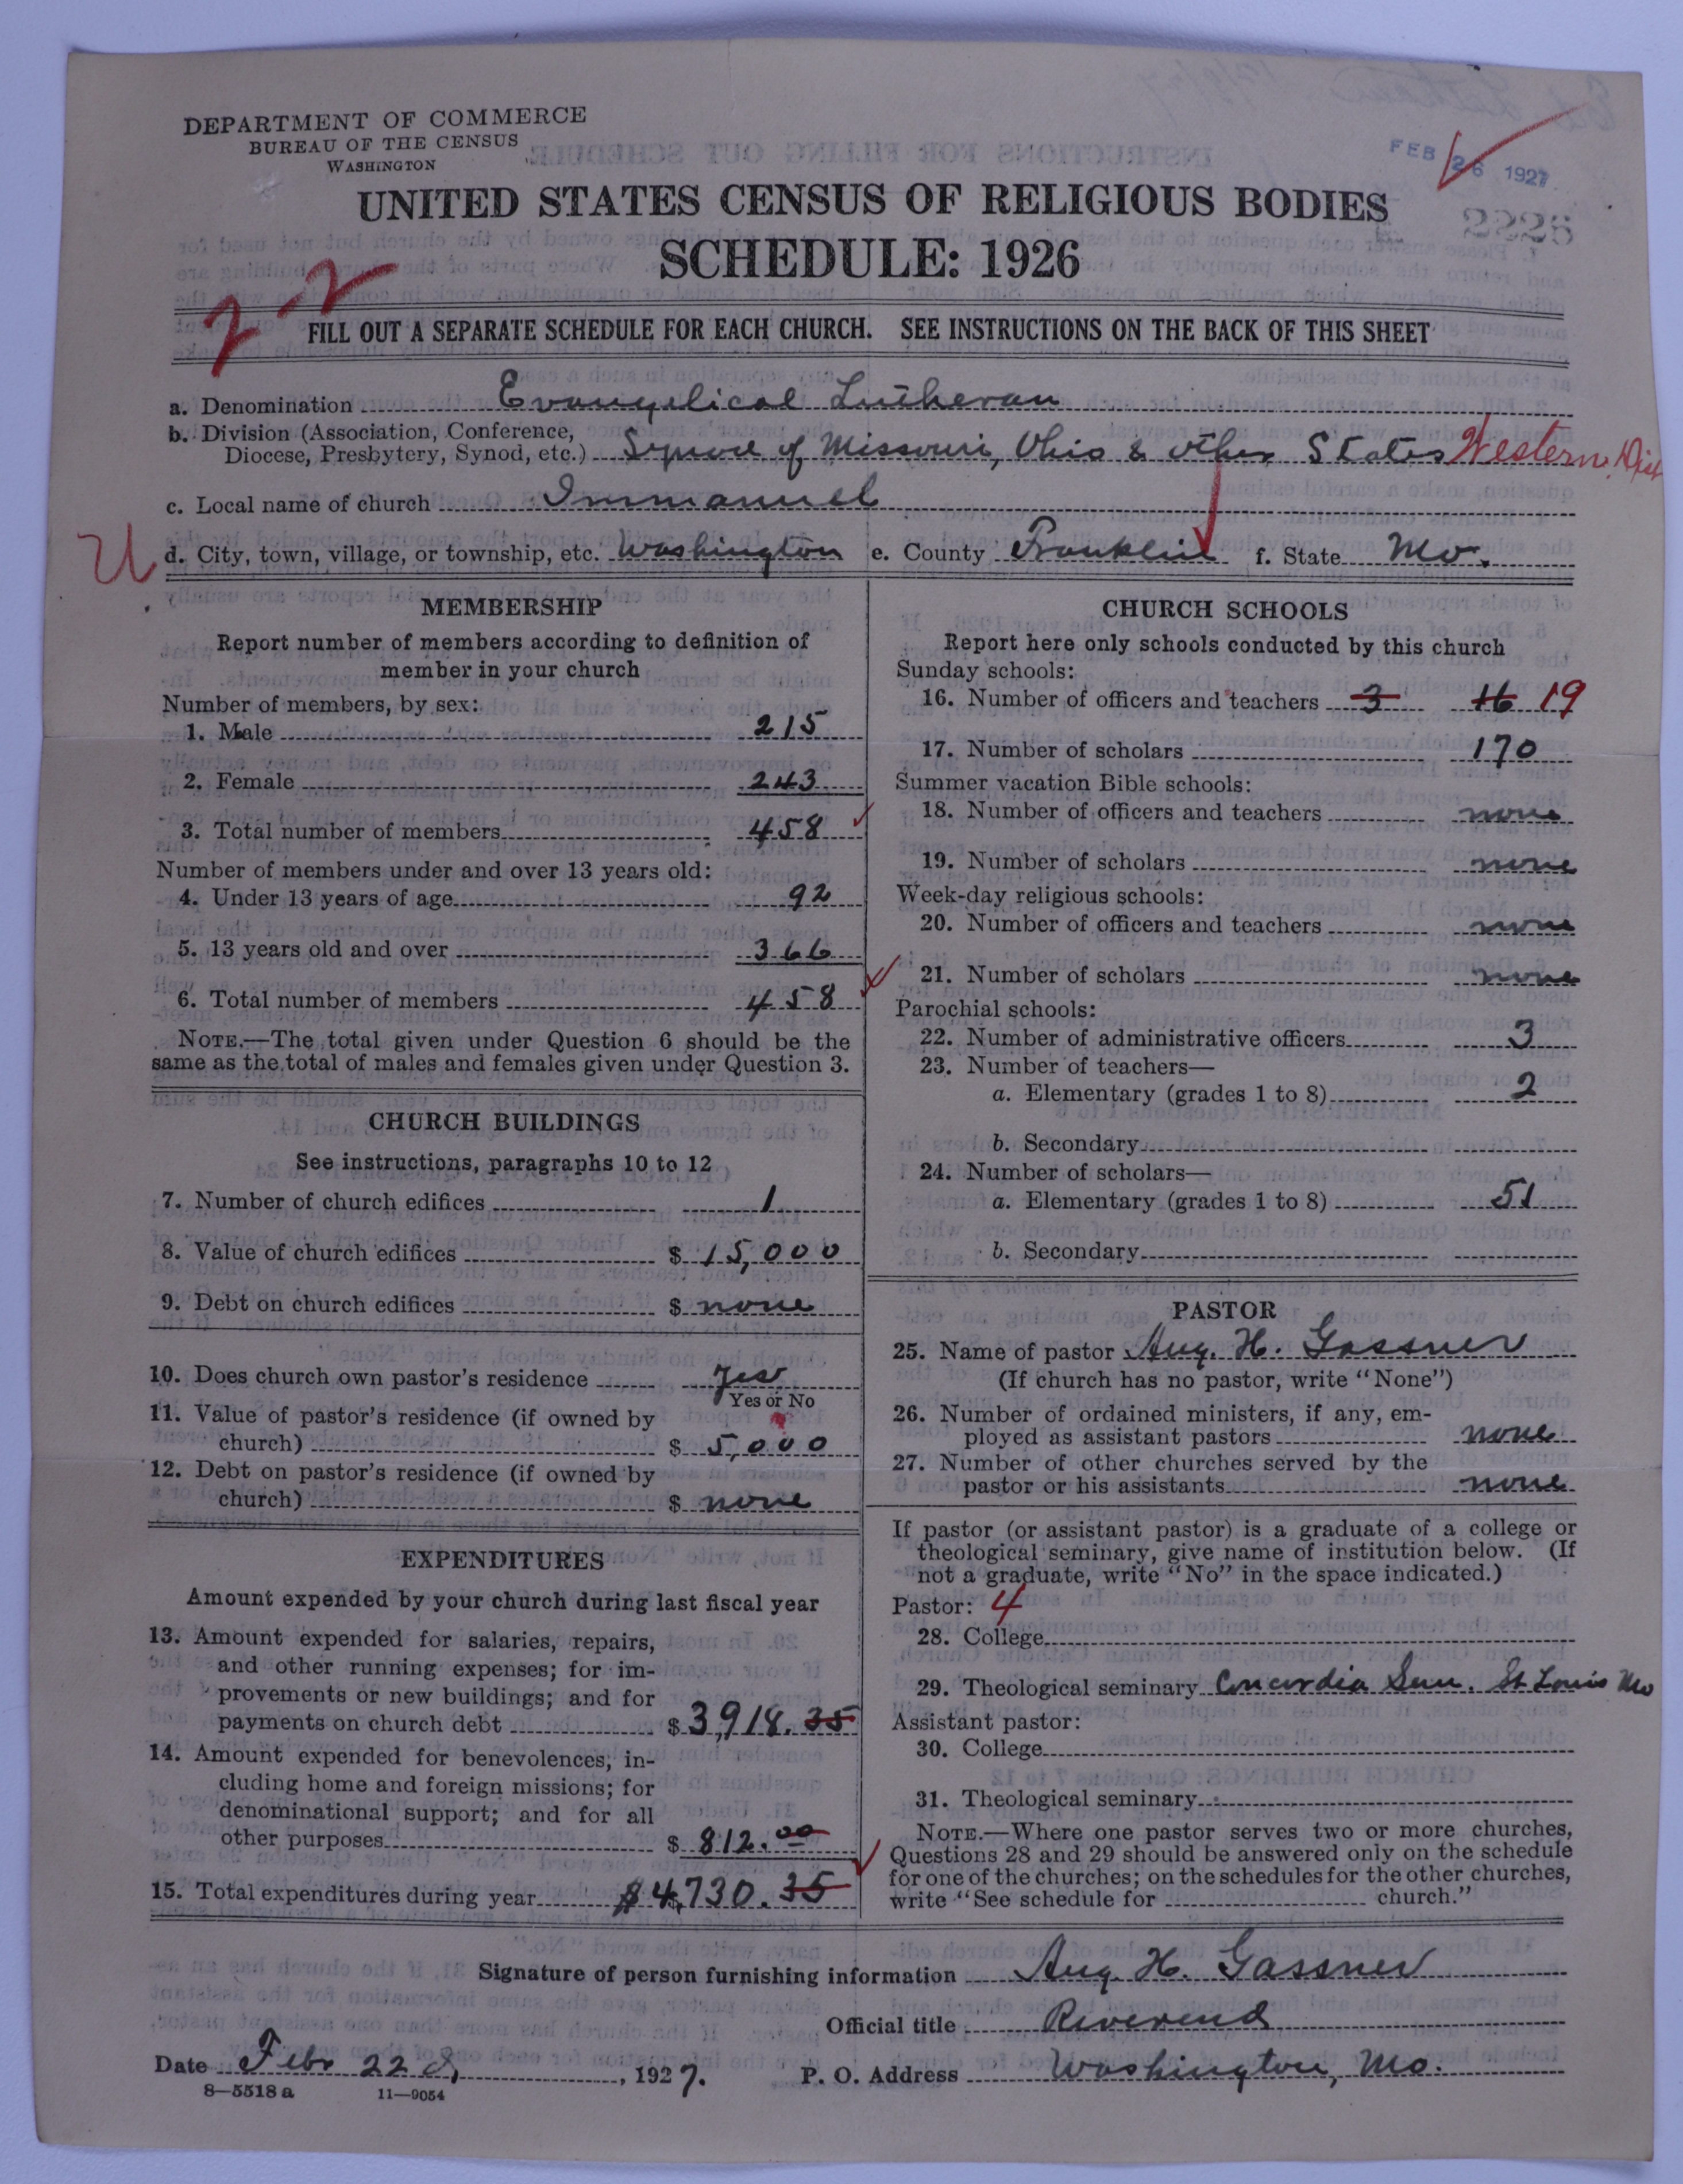 DEPARTMENT OF COMMERCE
BUREAU OF THE CENSUS
WASHINGTON
FEB 26 1927
UNITED STATES CENSUS OF RELIGIOUS BODIES
2226
SCHEDULE: 1926
2-2
FILL OUT A SEPARATE SCHEDULE FOR EACH CHURCH. SEE INSTRUCTIONS ON THE BACK OF THIS SHEET
a. Denomination Evangelical Lutheran
b. Division (Association, Conference,
Diocese, Presbytery, Synod, etc.) Synod of Missouri, Ohio & other States Western Dist
c. Local name of church Immanuel
U
d. City, town, village, or township, etc. Washington e. County Franklin f. State Mo.
MEMBERSHIP
Report number of members according to definition of
member in your church
Number of members, by sex:
1. Male 215
2. Female 243
3. Total number of members 458
Number of members under and over 13 years old:
4. Under 13 years of age 92
5. 13 years old and over 366
6. Total number of members 458
NOTE.—The total given under Question 6 should be the
same as the total of males and females given under Question 3.
CHURCH BUILDINGS
See instructions, paragraphs 10 to 12
7. Number of church edifices 1
8. Value of church edifices $ 15,000
9. Debt on church edifices $ none
10. Does church own pastor's residence Yes
Yes or No
11. Value of pastor's residence (if owned by
church) $ 5,000
12. Debt on pastor's residence (if owned by
church) $ none
EXPENDITURES
Amount expended by your church during last fiscal year
13. Amount expended for salaries, repairs,
and other running expenses; for im-
provements or new buildings; and for
payments on church debt $ 3,918.35
14. Amount expended for benevolences, in-
cluding home and foreign missions; for
denominational support; and for all
other purposes $ 812.00
15. Total expenditures during year $ 4,730.35
CHURCH SCHOOLS
Report here only schools conducted by this church
Sunday schools:
16. Number of officers and teachers 3 16 19
17. Number of scholars 170
Summer vacation Bible schools:
18. Number of officers and teachers none
19. Number of scholars none
Week-day religious schools:
20. Number of officers and teachers none
21. Number of scholars none
Parochial schools:
22. Number of administrative officers 3
23. Number of teachers—
a. Elementary (grades 1 to 8) 2
b. Secondary
24. Number of scholars—
a. Elementary (grades 1 to 8) 51
b. Secondary
PASTOR
25. Name of pastor Aug. H. Gassner
(If church has no pastor, write "None")
26. Number of ordained ministers, if any, em-
ployed as assistant pastors none
27. Number of other churches served by the
pastor or his assistants none
If pastor (or assistant pastor) is a graduate of a college or
theological seminary, give name of institution below. (If
not a graduate, write "No" in the space indicated.)
Pastor: 4
28. College
29. Theological seminary Concordia Sem. St Louis Mo
Assistant pastor:
30. College
31. Theological seminary
NOTE.—Where one pastor serves two or more churches,
Questions 28 and 29 should be answered only on the schedule
for one of the churches; on the schedules for the other churches,
write "See schedule for church."
Signature of person furnishing information Aug. H. Gassner
Official title Reverend
Date Feb. 22d, 1927. P. O. Address Washington, Mo.
8—5518 a 11—9054